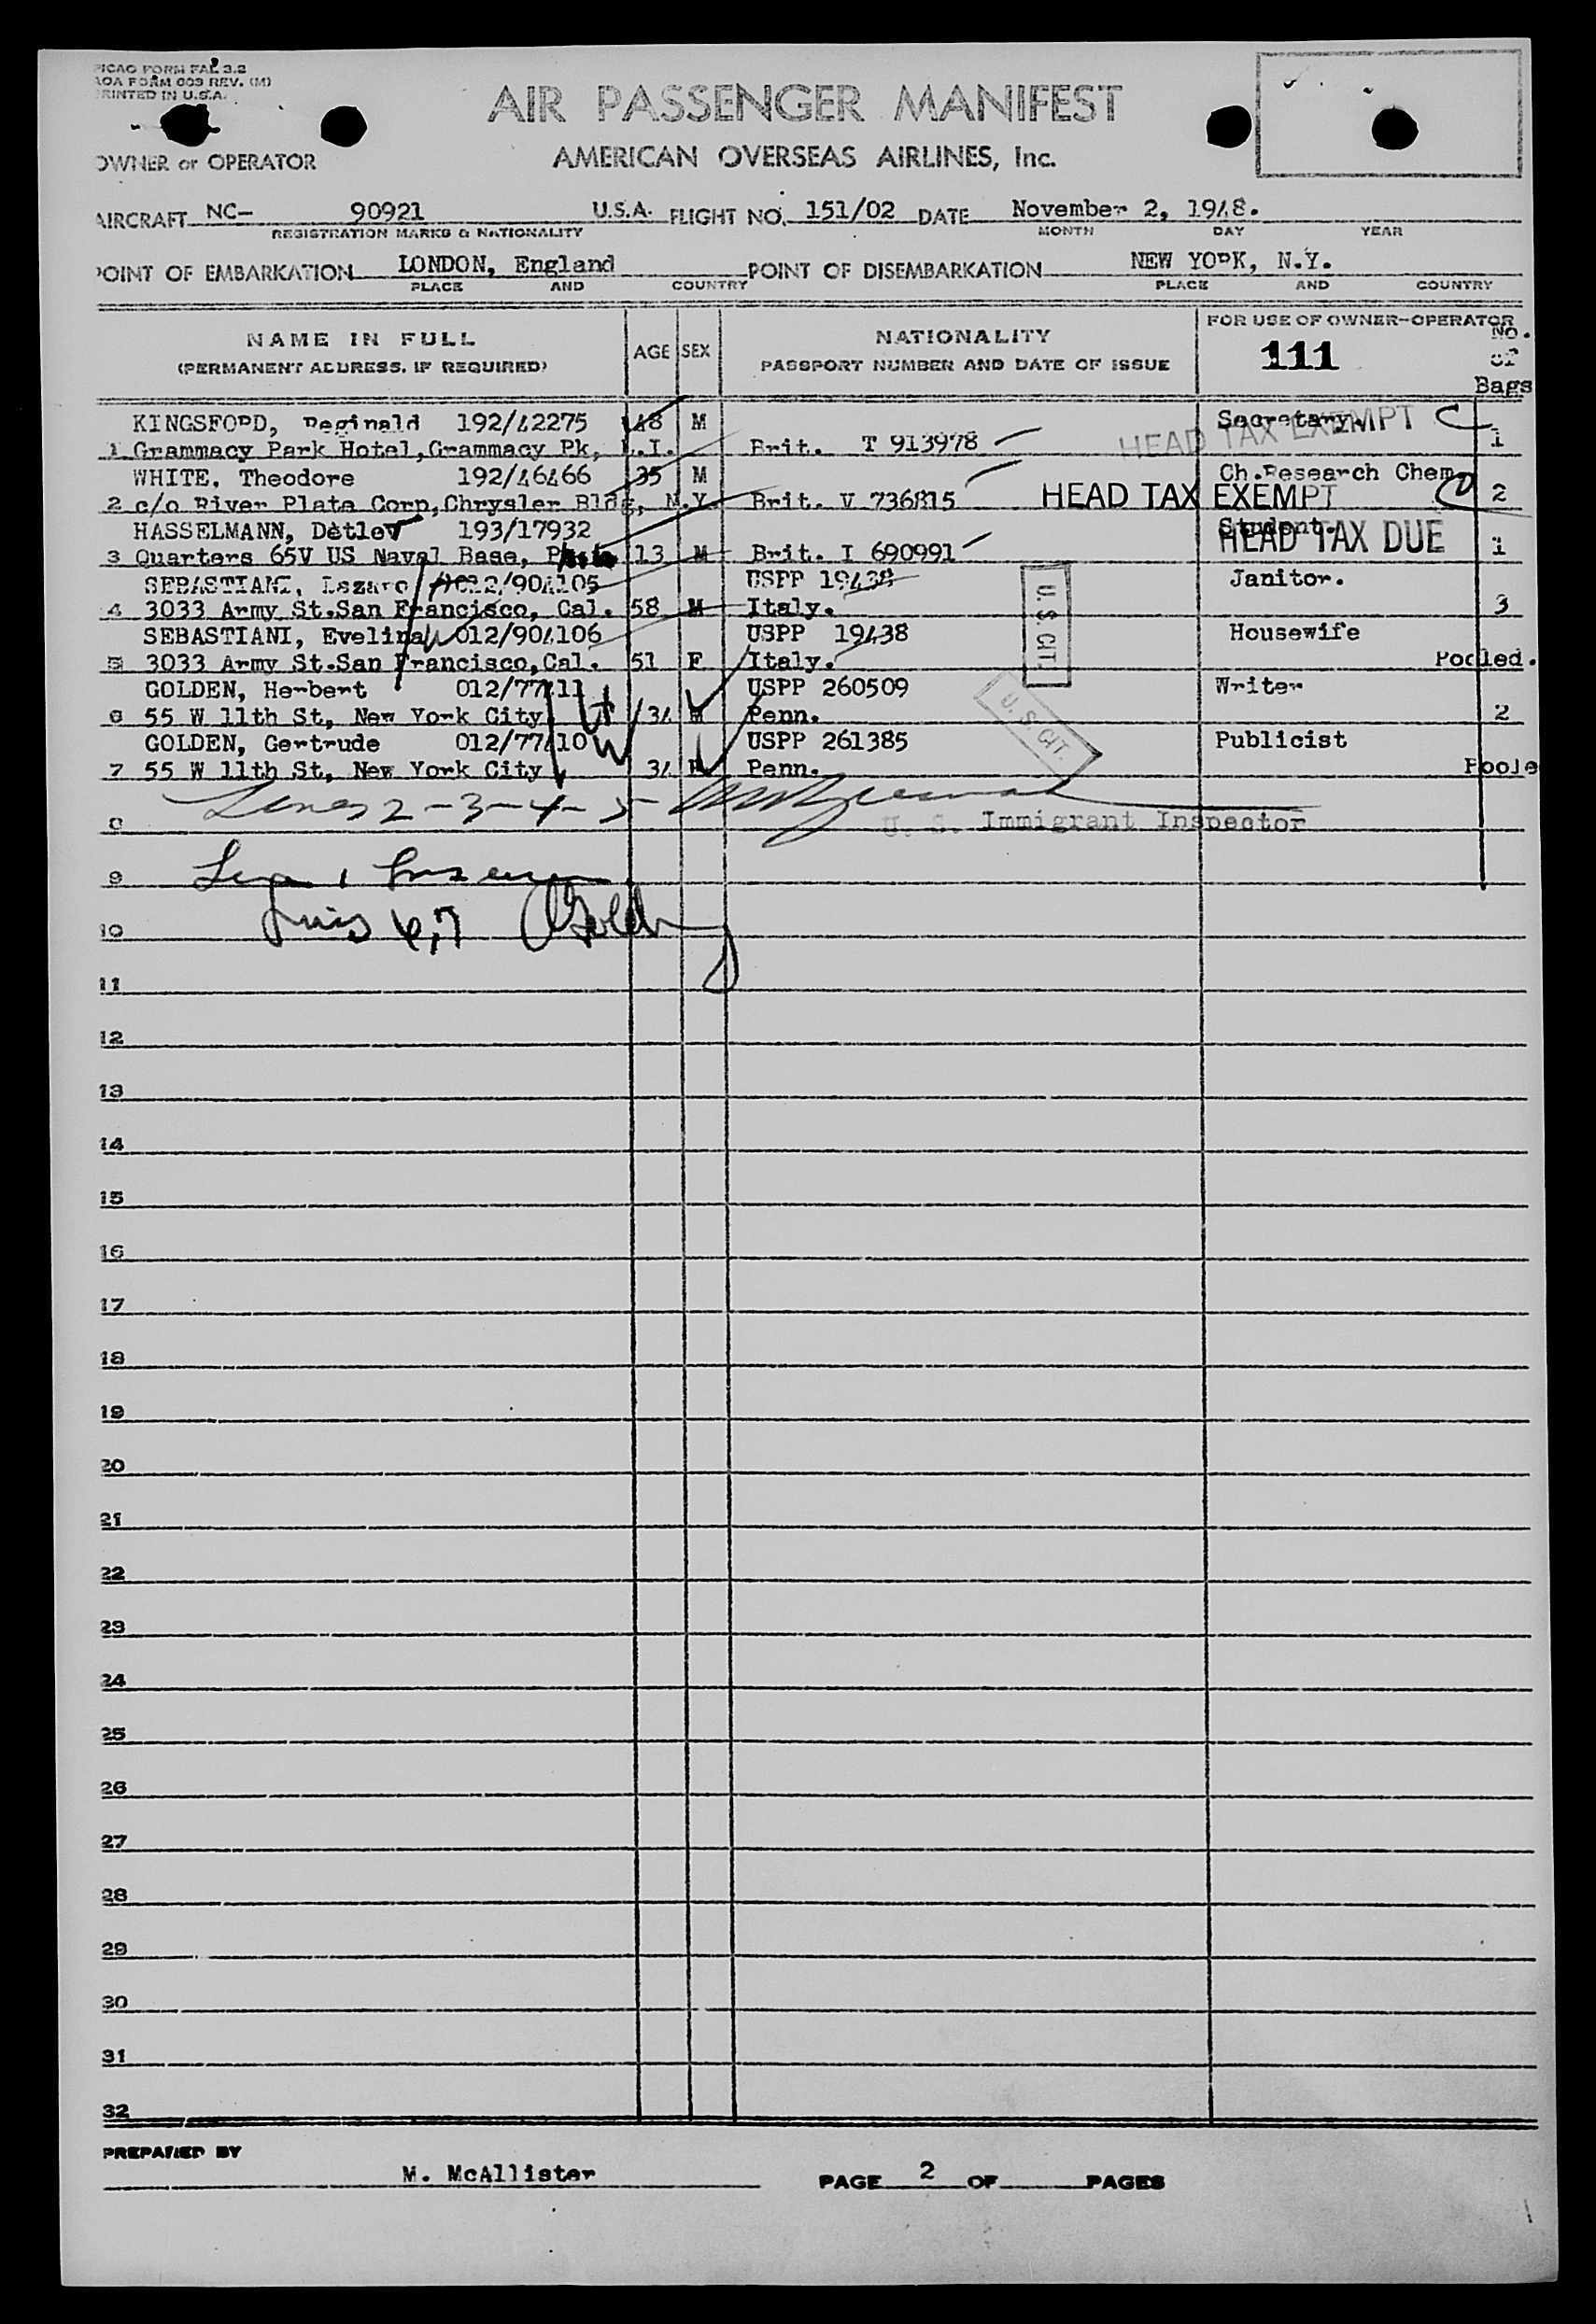 PICAO FORM FAL 3.2
AOA FORM 003 REV. (M)
PRINTED IN U.S.A.
AIR PASSENGER MANIFEST
OWNER or OPERATOR AMERICAN OVERSEAS AIRLINES, Inc.
AIRCRAFT NC- 90921 U.S.A. FLIGHT NO. 151/02 DATE November 2, 1948.
REGISTRATION MARKS & NATIONALITY MONTH DAY YEAR
POINT OF EMBARKATION LONDON, England POINT OF DISEMBARKATION NEW YORK, N.Y.
PLACE AND COUNTRY PLACE AND COUNTRY
NAME IN FULL AGE SEX NATIONALITY FOR USE OF OWNER-OPERATOR No.
(PERMANENT ADDRESS, IF REQUIRED) PASSPORT NUMBER AND DATE OF ISSUE 111 of
Bags
KINGSFORD, Reginald 192/42275 48 M Secretary. HEAD TAX EXEMPT
1 Grammacy Park Hotel, Grammacy Pk, L.I. Brit. T 913978 1
WHITE, Theodore 192/46466 35 M Ch.Research Chem
2 c/o River Plate Corp, Chrysler Bldg, N.Y. Brit. V 736815 HEAD TAX EXEMPT 2
HASSELMANN, Detlev 193/17932 Student. HEAD TAX DUE
3 Quarters 65V US Naval Base, 13 M Brit. I 690991 1
SEBASTIANI, Lazaro 012/904105 USPP 19438 Janitor.
4 3033 Army St.San Francisco, Cal. 58 M Italy. 3
SEBASTIANI, Evelina 012/904106 USPP 19438 Housewife
5 3033 Army St.San Francisco, Cal. 51 F Italy. Pooled.
U.S. CIT.
GOLDEN, Herbert 012/77411 USPP 260509 Writer
6 55 W 11th St, New York City 34 M Penn. 2
U.S. CIT.
GOLDEN, Gertrude 012/77410 USPP 261385 Publicist
7 55 W 11th St, New York City 34 F Penn. Poole
Lines 2-3-4-5-
8 U. S. Immigrant Inspector
9
10 6,7
11
12
13
14
15
16
17
18
19
20
21
22
23
24
25
26
27
28
29
30
31
32
PREPARED BY M. McAllister PAGE 2 OF PAGES